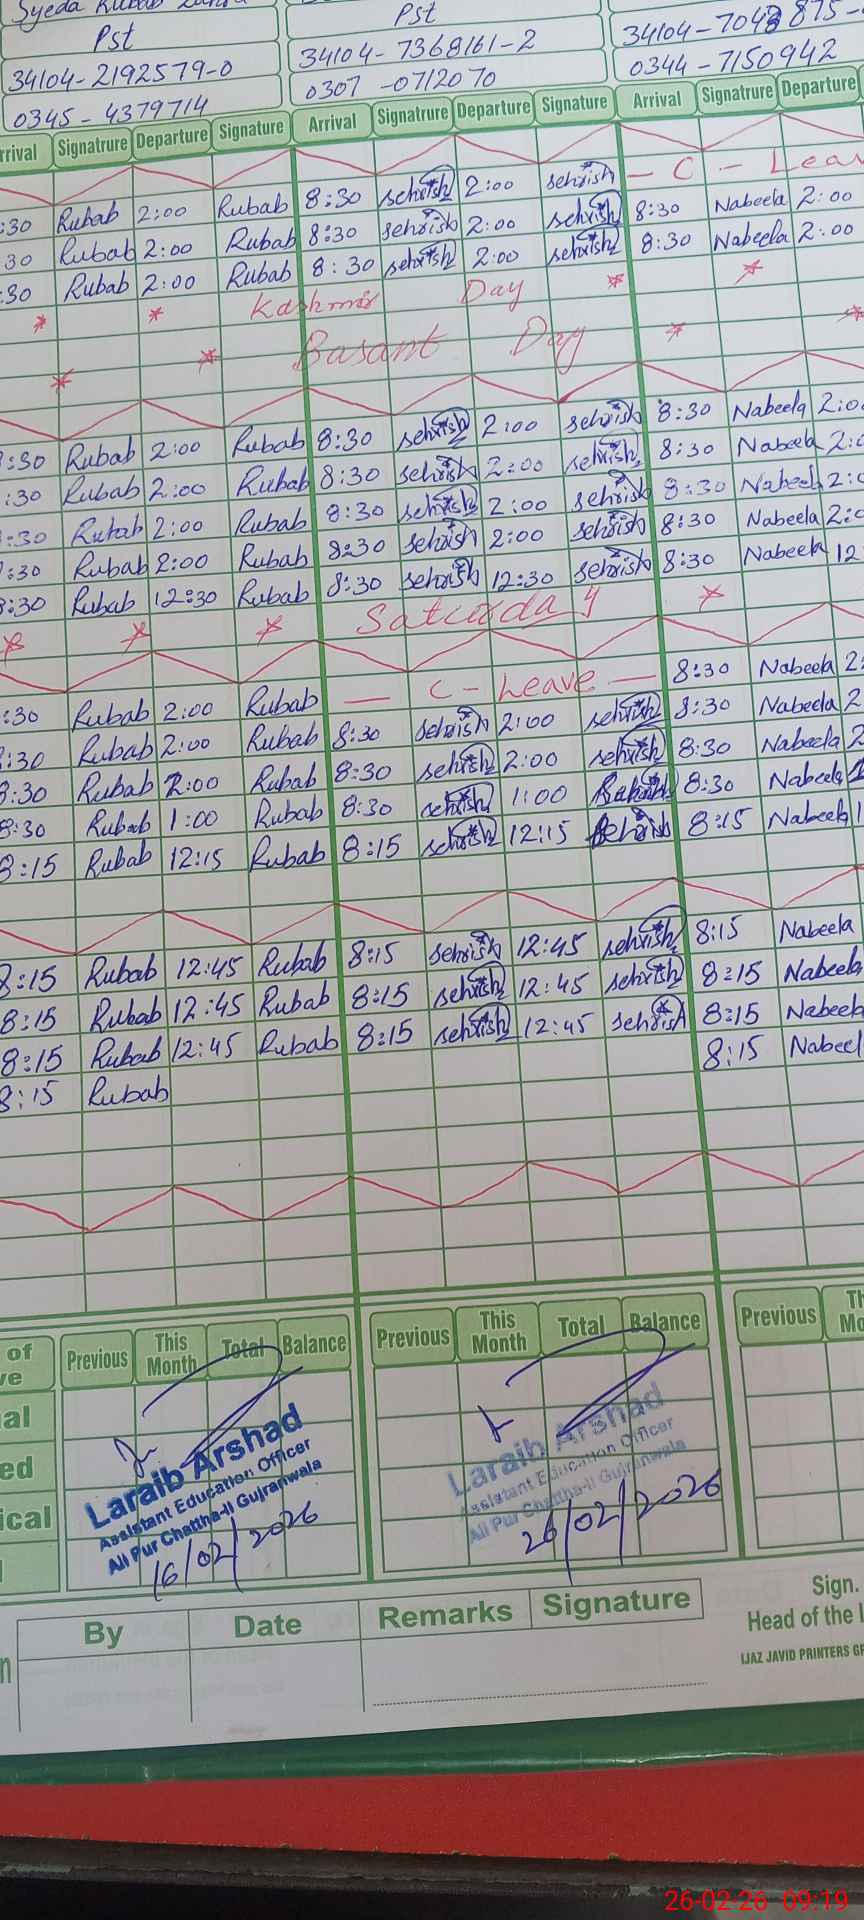 Syeda Rubab Zahra
Pst Pst
34104-2192579-0 34104-7368161-2 34104-7048875-
0345-4379714 0307-0712070 0344-7150942
rrival Signatrure Departure Signature Arrival Signatrure Departure Signature Arrival Signatrure Departure
:30 Rubab 2:00 Rubab 8:30 sehrish 2:00 sehrish — C - Leav
30 Rubab 2:00 Rubab 8:30 sehrish 2:00 sehrish 8:30 Nabeela 2:00
:30 Rubab 2:00 Rubab 8:30 sehrish 2:00 sehrish 8:30 Nabeela 2:00
* * Kashmir Day * *
* * Basant Day * *
:30 Rubab 2:00 Rubab 8:30 sehrish 2:00 sehrish 8:30 Nabeela 2:0
:30 Rubab 2:00 Rubab 8:30 sehrish 2:00 sehrish 8:30 Nabeela 2:
:30 Rubab 2:00 Rubab 8:30 sehrish 2:00 sehrish 8:30 Nabeela 2:
:30 Rubab 2:00 Rubab 8:30 sehrish 2:00 sehrish 8:30 Nabeela 2:
8:30 Rubab 12:30 Rubab 8:30 sehrish 12:30 sehrish 8:30 Nabeela 12
* * * Saturday *
:30 Rubab 2:00 Rubab — C - Leave — 8:30 Nabeela 2:
8:30 Rubab 2:00 Rubab 8:30 sehrish 2:00 sehrish 8:30 Nabeela 2
8:30 Rubab 2:00 Rubab 8:30 sehrish 2:00 sehrish 8:30 Nabeela 2
8:30 Rubab 1:00 Rubab 8:30 sehrish 1:00 8:30 Nabeela
8:15 Rubab 12:15 Rubab 8:15 sehrish 12:15 Sehrish 8:15 Nabeela 1
8:15 Rubab 12:45 Rubab 8:15 sehrish 12:45 sehrish 8:15 Nabeela
8:15 Rubab 12:45 Rubab 8:15 sehrish 12:45 sehrish 8:15 Nabeela
8:15 Rubab 12:45 Rubab 8:15 sehrish 12:45 sehrish 8:15 Nabeela
8:15 Rubab 8:15 Nabeel
of Previous This Month Total Balance Previous This Month Total Balance Previous Th Mo
ve
al
ed
ical
Laraib Arshad
Assistant Education Officer
Ali Pur Chattha-II Gujranwala
16/02/2026
Laraib Arshad
Assistant Education Officer
Ali Pur Chattha-II Gujranwala
26/02/2026
By Date Remarks Signature
n
Sign.
Head of the I
IJAZ JAVID PRINTERS GR
26-02-26 09:19